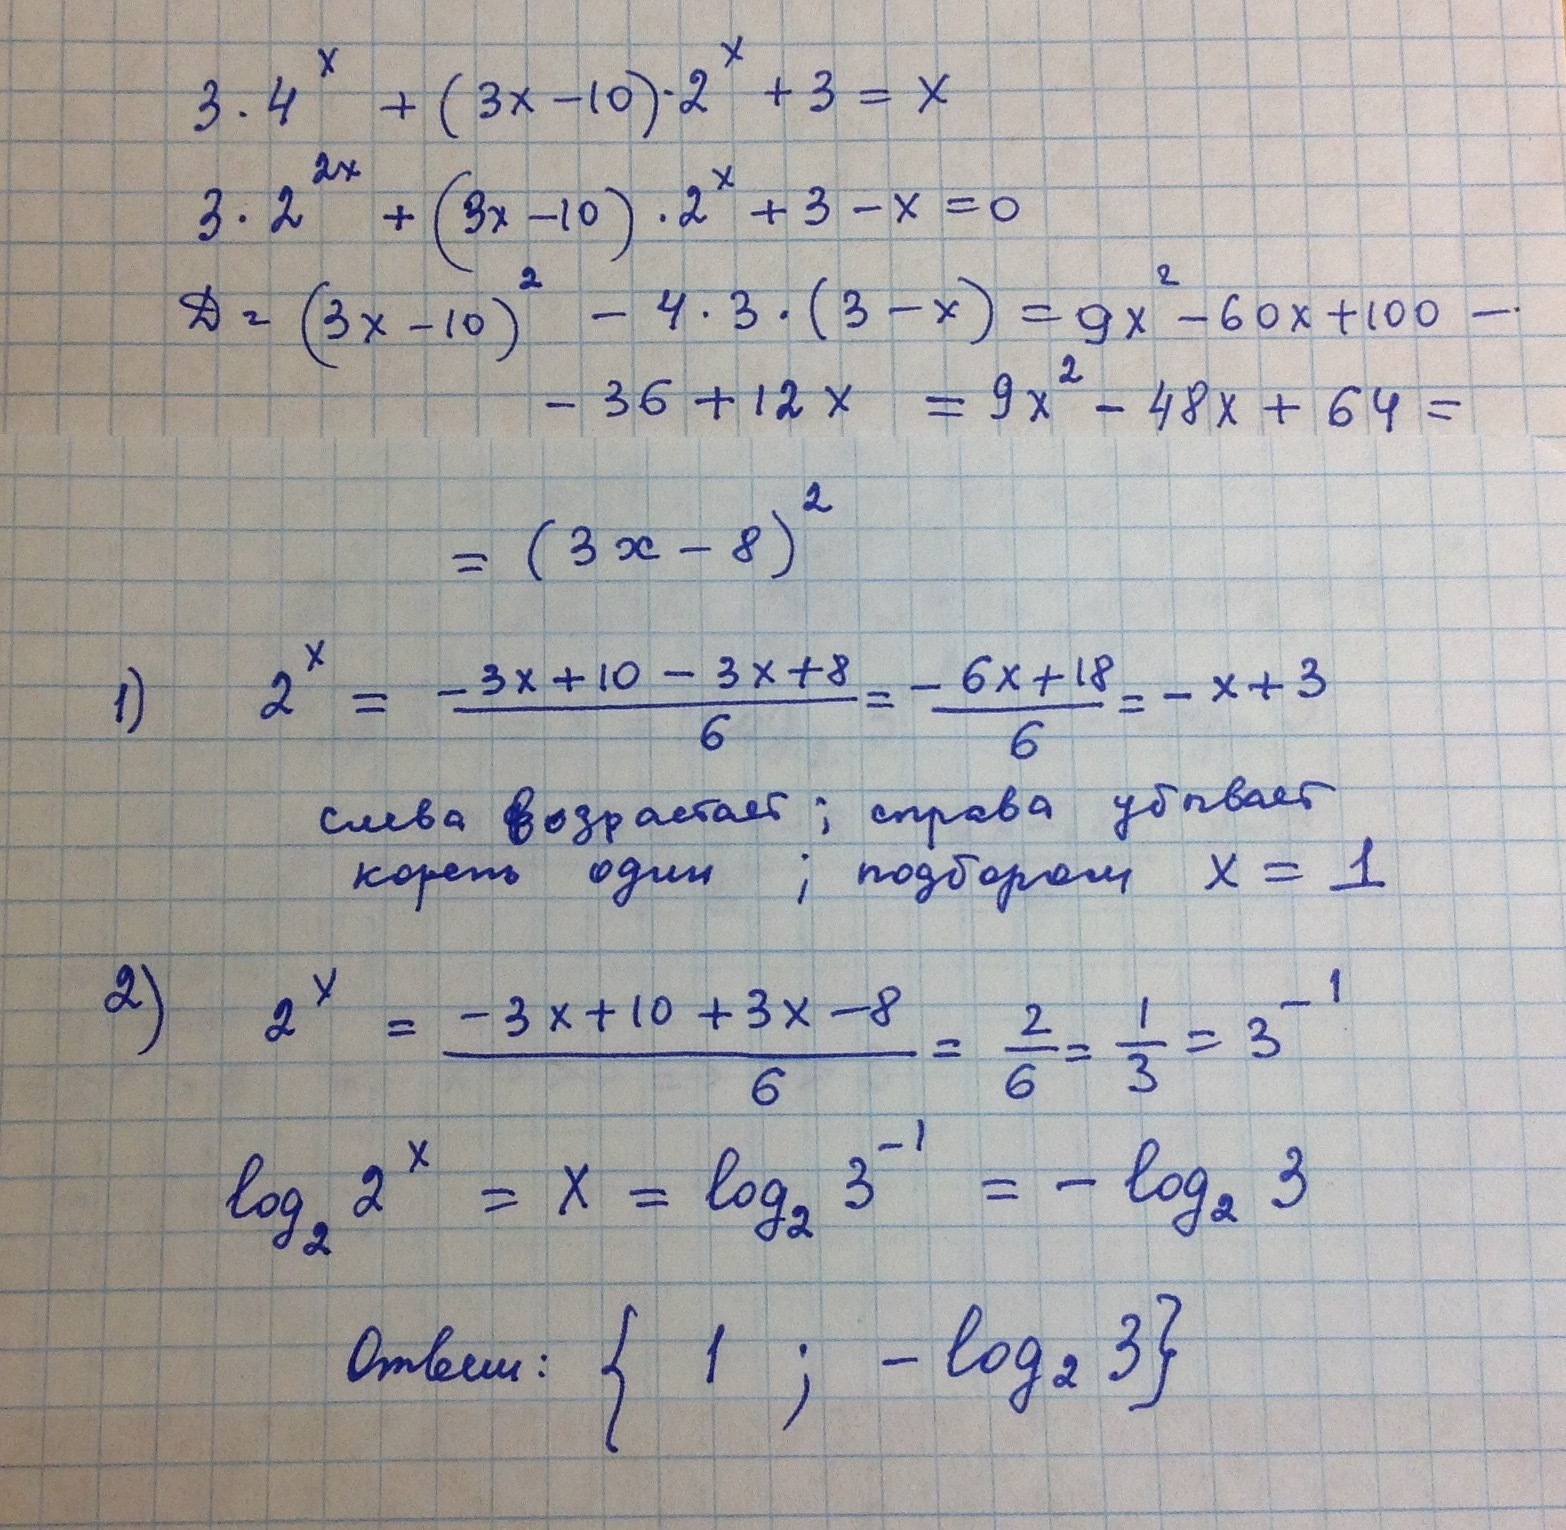 3 · 4^x + (3x − 10) · 2^x + 3 = x
3 · 2^2x + (3x − 10) · 2^x + 3 − x = 0
D = (3x − 10)^2 − 4 · 3 · (3 − x) = 9x^2 − 60x + 100 −
− 36 + 12x = 9x^2 − 48x + 64 =
= (3x − 8)^2
1) 2^x = (−3x + 10 − 3x + 8)/6 = (−6x + 18)/6 = −x + 3
слева возрастает ; справа убывает
корень один ; подбором x = 1
2) 2^x = (−3x + 10 + 3x − 8)/6 = 2/6 = 1/3 = 3^−1
log_2 2^x = x = log_2 3^−1 = − log_2 3
Ответ: { 1 ; − log_2 3}